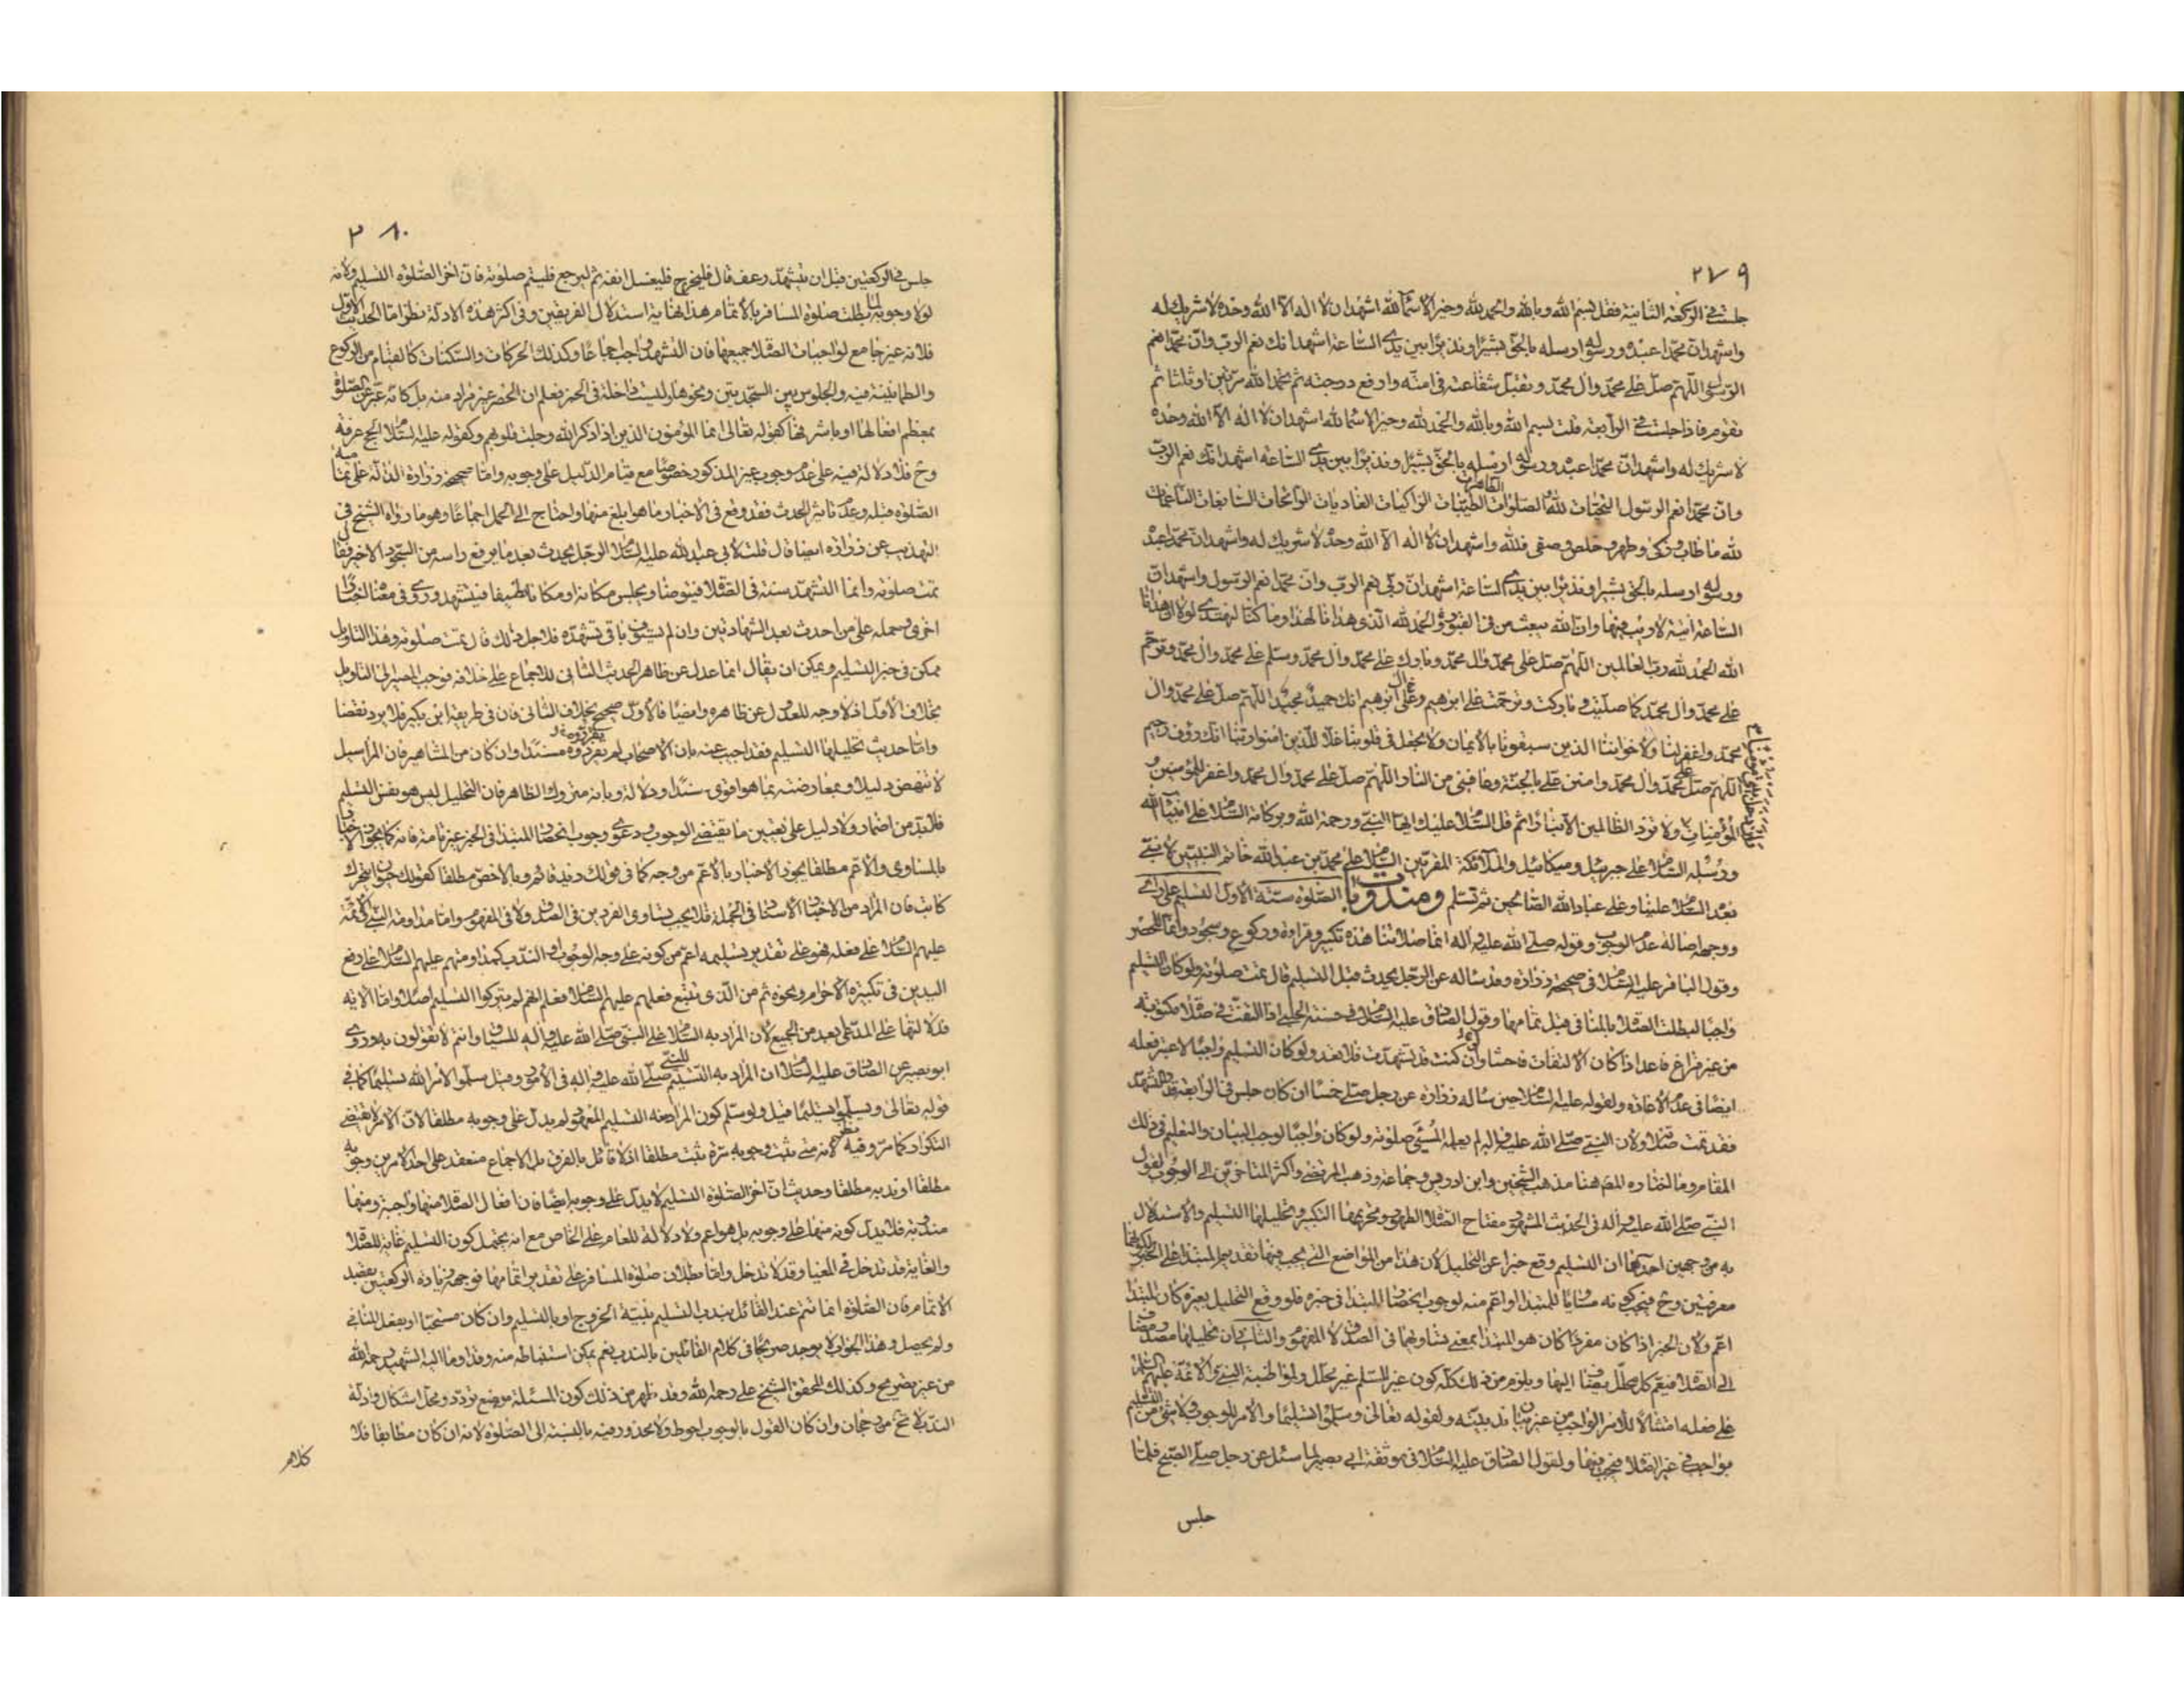 ٢٧٩
جلست في الركعة الثانية فقل بسم الله وبالله والحمد لله وخير الاسماء لله اشهد ان لا اله الا الله وحده لا شريك له
واشهد ان محمدا عبده ورسوله ارسله بالحق بشيرا ونذيرا بين يدي الساعة اشهد انك نعم الرب وان محمدا نعم
الرسول اللهم صل على محمد وال محمد وتقبل شفاعته في امته وارفع درجته ثم تحمد الله مرتين او ثلثا ثم
تقوم فاذا جلست في الرابعة قلت بسم الله وبالله والحمد لله وخير الاسماء لله اشهد ان لا اله الا الله وحده
لا شريك له واشهد ان محمدا عبده ورسوله ارسله بالحق بشيرا ونذيرا بين يدي الساعة اشهد انك نعم الرب
وان محمدا نعم الرسول التحيات لله والصلوات الطاهرات الطيبات الزاكيات الغاديات الرائحات السابغات الناعمات
لله ما طاب وزكى وطهر وخلص وصفى فلله واشهد ان لا اله الا الله وحده لا شريك له واشهد ان محمدا عبده
ورسوله ارسله بالحق بشيرا ونذيرا بين يدي الساعة اشهد ان ربي نعم الرب وان محمدا نعم الرسول واشهد ان
الساعة اتية لا ريب فيها وان الله يبعث من في القبور والحمد لله الذي هدانا لهذا وما كنا لنهتدي لولا ان هدانا
الله الحمد لله رب العالمين اللهم صل على محمد وال محمد وبارك على محمد وال محمد وسلم على محمد وال محمد وترحم
على محمد وال محمد كما صليت وباركت وترحمت على ابرهيم وعلى ال ابرهيم انك حميد مجيد اللهم صل على محمد وال
محمد واغفر لنا ولاخواننا الذين سبقونا بالايمان ولا تجعل في قلوبنا غلا للذين امنوا ربنا انك رؤف رحيم
اللهم صل على محمد وال محمد وامنن علي بالجنة وعافني من النار اللهم صل على محمد وال محمد واغفر للمؤمنين و
المؤمنات ولا تزد الظالمين الا تبارا ثم قل السلام عليك ايها النبي ورحمة الله وبركاته السلام على انبياء الله
ورسله السلام على جبرئيل وميكائيل والملائكة المقربين السلام على محمد بن عبد الله خاتم النبيين لا نبي
بعده السلام علينا وعلى عباد الله الصالحين ثم تسلم ومندوبات الصلوة ستة الاول التسليم على راي
ووجهه اصالة عدم الوجوب وقوله صلى الله عليه واله انما صلاتنا هذه تكبير وقراءة وركوع وسجود وانما للحصر
وقول الباقر عليه السلام في صحيحة زرارة وقد ساله عن الرجل يحدث قبل التسليم قال تمت صلوته ولو كان التسليم
واجبا لبطلت الصلاة بالمنافي قبل تمامها وقول الصادق عليه السلام في حسنة الحلبي اذا التفت في صلاة مكتوبة
من غير فراغ فاعد اذا كان الالتفات فاحشا وان كنت قد تشهدت فلا تعد ولو كان التسليم واجبا لاعتبر فعله
ايضا في عدم الاعادة ولقوله عليه السلام حين ساله زرارة عن رجل صلى خمسا ان كان جلس في الرابعة قدر التشهد
فقد تمت صلاته ولان النبي صلى الله عليه واله لم يعلمه المسئ صلوته ولو كان واجبا لوجب البيان والتعليم في ذلك
المقام وما اختاره المصـ هنا مذهب الشيخين وابن ادريس وجماعة وذهب المرتضى واكثر المتاخرين الى الوجوب لقول
النبي صلى الله عليه واله في الحديث المشهور مفتاح الصلاة الطهور وتحريمها التكبير وتحليلها التسليم والاستدلال
به من وجهين احدهما ان التسليم وقع خبرا عن التحليل لان هذا من المواضع التي يجب فيها تقديم المبتدا على الخبر لكونهما
معرفتين وح فيجب كونه مساويا للمبتدا او اعم منه لوجوب انحصار المبتدا في خبره فلو وقع التحليل بغيره كان المبتدا
اعم ولان الخبر اذا كان مفردا كان هو المبتدا بمعنى تساويهما في الصدق لا المفهوم والثاني ان تحليلها مصدر مضاف
الى الصلاة فيعم كل محلل يضاف اليها ويلزم من ذلك كله كون غير التسليم غير محلل ولمواظبة النبي والائمة عليهم السلام
على فعله امتثالا للامر الواجب من غير بيان ندبيته ولقوله تعالى وسلموا تسليما والامر للوجوب ولا شئ من التسليم
بواجب في غير الصلاة فيجب فيها ولقول الصادق عليه السلام في موثقة ابي بصير لما سئل عن رجل صلى الصبح فلما
جلس
٢٨٠
جلس في الركعتين قبل ان يتشهد رعف قال فليخرج فليغسل انفه ثم ليرجع فليتم صلوته فان اخر الصلوة التسليم ولانه
لولا وجوبه لما بطلت صلوة المسافر بالاتمام هذا نهاية استدلال الفريقين وفي اكثر هذه الادلة نظر اما الحديث الاول
فلانه غير جامع لواجبات الصلاة جميعها فان التشهد واجب اجماعا وكذلك الحركات والسكنات كالقيام من الركوع
والطمانينة فيه والجلوس بين السجدتين ونحوها وليست داخلة في الخبر فعلم ان الحصر غير مراد منه بل كانه عبر عن الصلوة
بمعظم افعالها او باشرفها كقوله تعالى انما المؤمنون الذين اذا ذكر الله وجلت قلوبهم وكقوله عليه السلام الحج عرفة
وح فلا دلالة فيه على عدم وجوب غير المذكور خصوصا مع قيام الدليل على وجوبه واما صحيحة زرارة الدالة على تمامية
الصلوة قبله وعدم تاثير الحدث فقد وقع في الاخبار ما هو ابلغ منها واحتاج الى الحمل اجماعا وهو ما رواه الشيخ في
التهذيب عن زرارة ايضا قال قلت لابي عبد الله عليه السلام الرجل يحدث بعد ما يرفع راسه من السجود الاخير فقال
تمت صلوته وانما التشهد سنة في الصلاة فيتوضا ويجلس مكانه او مكانا نظيفا فيتشهد وروى في معناه اخبارا
اخرى وحمله على من احدث بعد الشهادتين وان لم يستوف باقي تشهده فلاجل ذلك قال تمت صلوته وهذا التاويل
ممكن في خبر التسليم ويمكن ان يقال انما عدل عن ظاهر الحديث الثاني للاجماع على خلافه فوجب المصير الى التاويل
بخلاف الاول اذ لا وجه للعدول عن ظاهره وايضا فالاول صحيح بخلاف الثاني فان في طريقه ابن بكير فلا يرد نقضا
واما حديث تحليلها التسليم فقد اجيب عنه بان الاصحاب لم يرووه مسندا وان كان من المشاهير فان المراسيل
لا تنهض دليلا وبمعارضته بما هو اقوى سندا ودلالة وبانه متروك الظاهر فان التحليل ليس هو نفس التسليم
فلا بد من اضمار ولا دليل على تعيين ما يقتضي الوجوب ودعوى وجوب انحصار المبتدا في الخبر غير تامة فانه كما يجوز الاخبار
بالمساوي والاعم مطلقا يجوز الاخبار بالاعم من وجه كما في قولك زيد قائم وبالاخص مطلقا كقولك حيوان متحرك
كاتب فان المراد من الاخبار الاسناد في الجملة فلا يجب تساوي المفردين في الصدق ولا في المفهوم واما مداومة النبي والائمة
عليهم السلام على فعله فهو على تقدير تسليمه اعم من كونه على وجه الوجوب او الندب كمداومتهم عليهم السلام على رفع
اليدين في تكبيرة الاحرام ونحوه ثم من الذي تتبع فعلهم عليهم السلام فعلم انهم لم يتركوا التسليم اصلا واما الاية
فدلالتها على المدعى بعيد من الجميع لان المراد به السلام على النبي صلى الله عليه واله للسياق وانتم لا تقولون به وروى
ابو بصير عن الصادق عليه السلام ان المراد به التسليم للنبي صلى الله عليه واله في الامور وقيل سلموا لامر الله تسليما كما في
قوله تعالى ويسلموا تسليما قيل ولو سلم كون المراد منه التسليم المعهود لم يدل على وجوبه مطلقا لان الامر لا يقتضي
التكرار كما مر وفيه نظر لانه متى ثبت وجوبه مرة ثبت مطلقا اذ لا قائل بالفرق بل الاجماع منعقد على احد الامرين وجوبه
مطلقا او ندبه مطلقا وحديث ان اخر الصلوة التسليم لا يدل على وجوبه ايضا فان افعال الصلاة منها واجبة ومنها
مندوبة فلا يدل كونه منها على وجوبه بل هو اعم ولا دلالة للعام على الخاص مع انه يحتمل كون التسليم غاية للصلاة
والغاية قد تدخل في المغيا وقد لا تدخل واما بطلان صلوة المسافر على تقدير اتمامها فوجهه زيادة الركعتين بقصد
الاتمام فان الصلوة انما تتم عند القائل بندب التسليم بنية الخروج او بالتسليم وان كان مستحبا او بفعل المنافي
ولم يحصل وهذا الجواب لا يوجد صريحا في كلام القائلين بالندب نعم يمكن استنباطه منه وقد اوما اليه الشهيد رحمه الله
من غير تصريح وكذلك المحقق الشيخ علي رحمه الله وقد ظهر من ذلك كون المسئلة موضع تردد ومحل اشكال وادلة
الندب لا تخ من رجحان وان كان القول بالوجوب احوط ولا محذور فيه بالنسبة الى الصلوة لانه ان كان مطابقا فلا
كلام